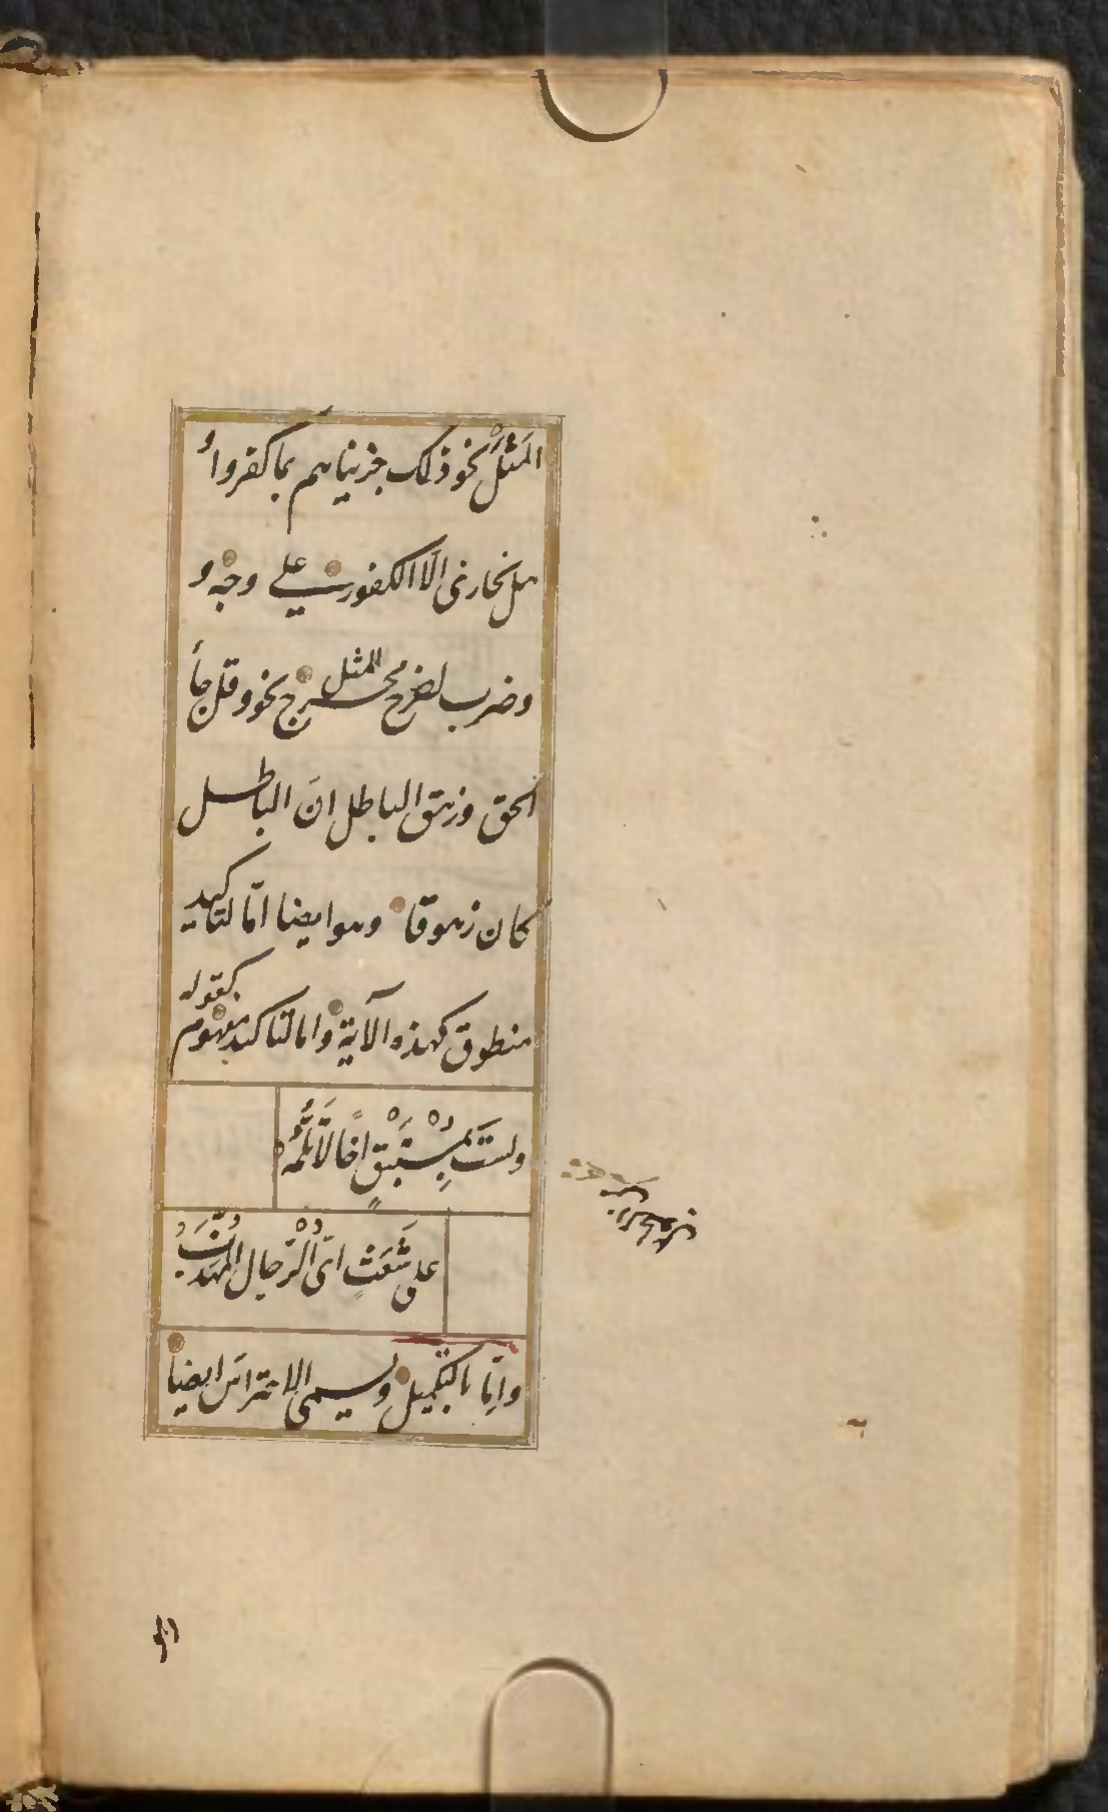 المَثَلْ نحو ذلك جزيناهم بما كفروا
هل نجازى الا الكفور على وجه و
وضرب اخرج مخرج المثل نحو وقل جاء
الحق وزهق الباطل انّ الباطل
كان زهوقا وهو ايضا امّا لتاكيد
منطوق كهذه الآية واما لتاكيد مفهوم كقوله
ولستَ بِمُسْتَبْقٍ اخًا لَا تَلُمُّهُ
على شَعَثٍ اىّ الرّجال المُهَذَّبُ
وامّا بالتكميل ويسمى الاحتراس ايضا